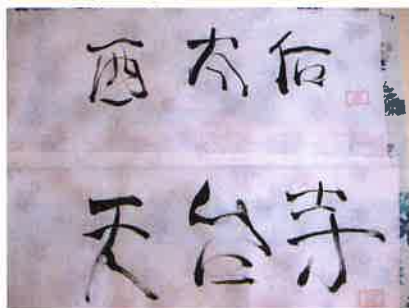 西太后
天台寺